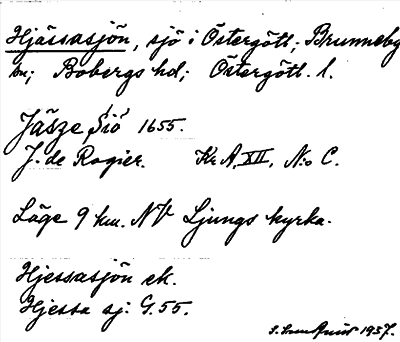 Hjässasjön, sjö i Östergötl.; Brunneby
sn; Bobergs hd; Östergötl. l.
Jäsze Siö 1655.
J. de Rogier. Kr A, XII, N:o C.
Läge 9 km. NV Ljungs kyrka.
Hjessasjön ek.
Hjessa sj: G. 55.
1937.